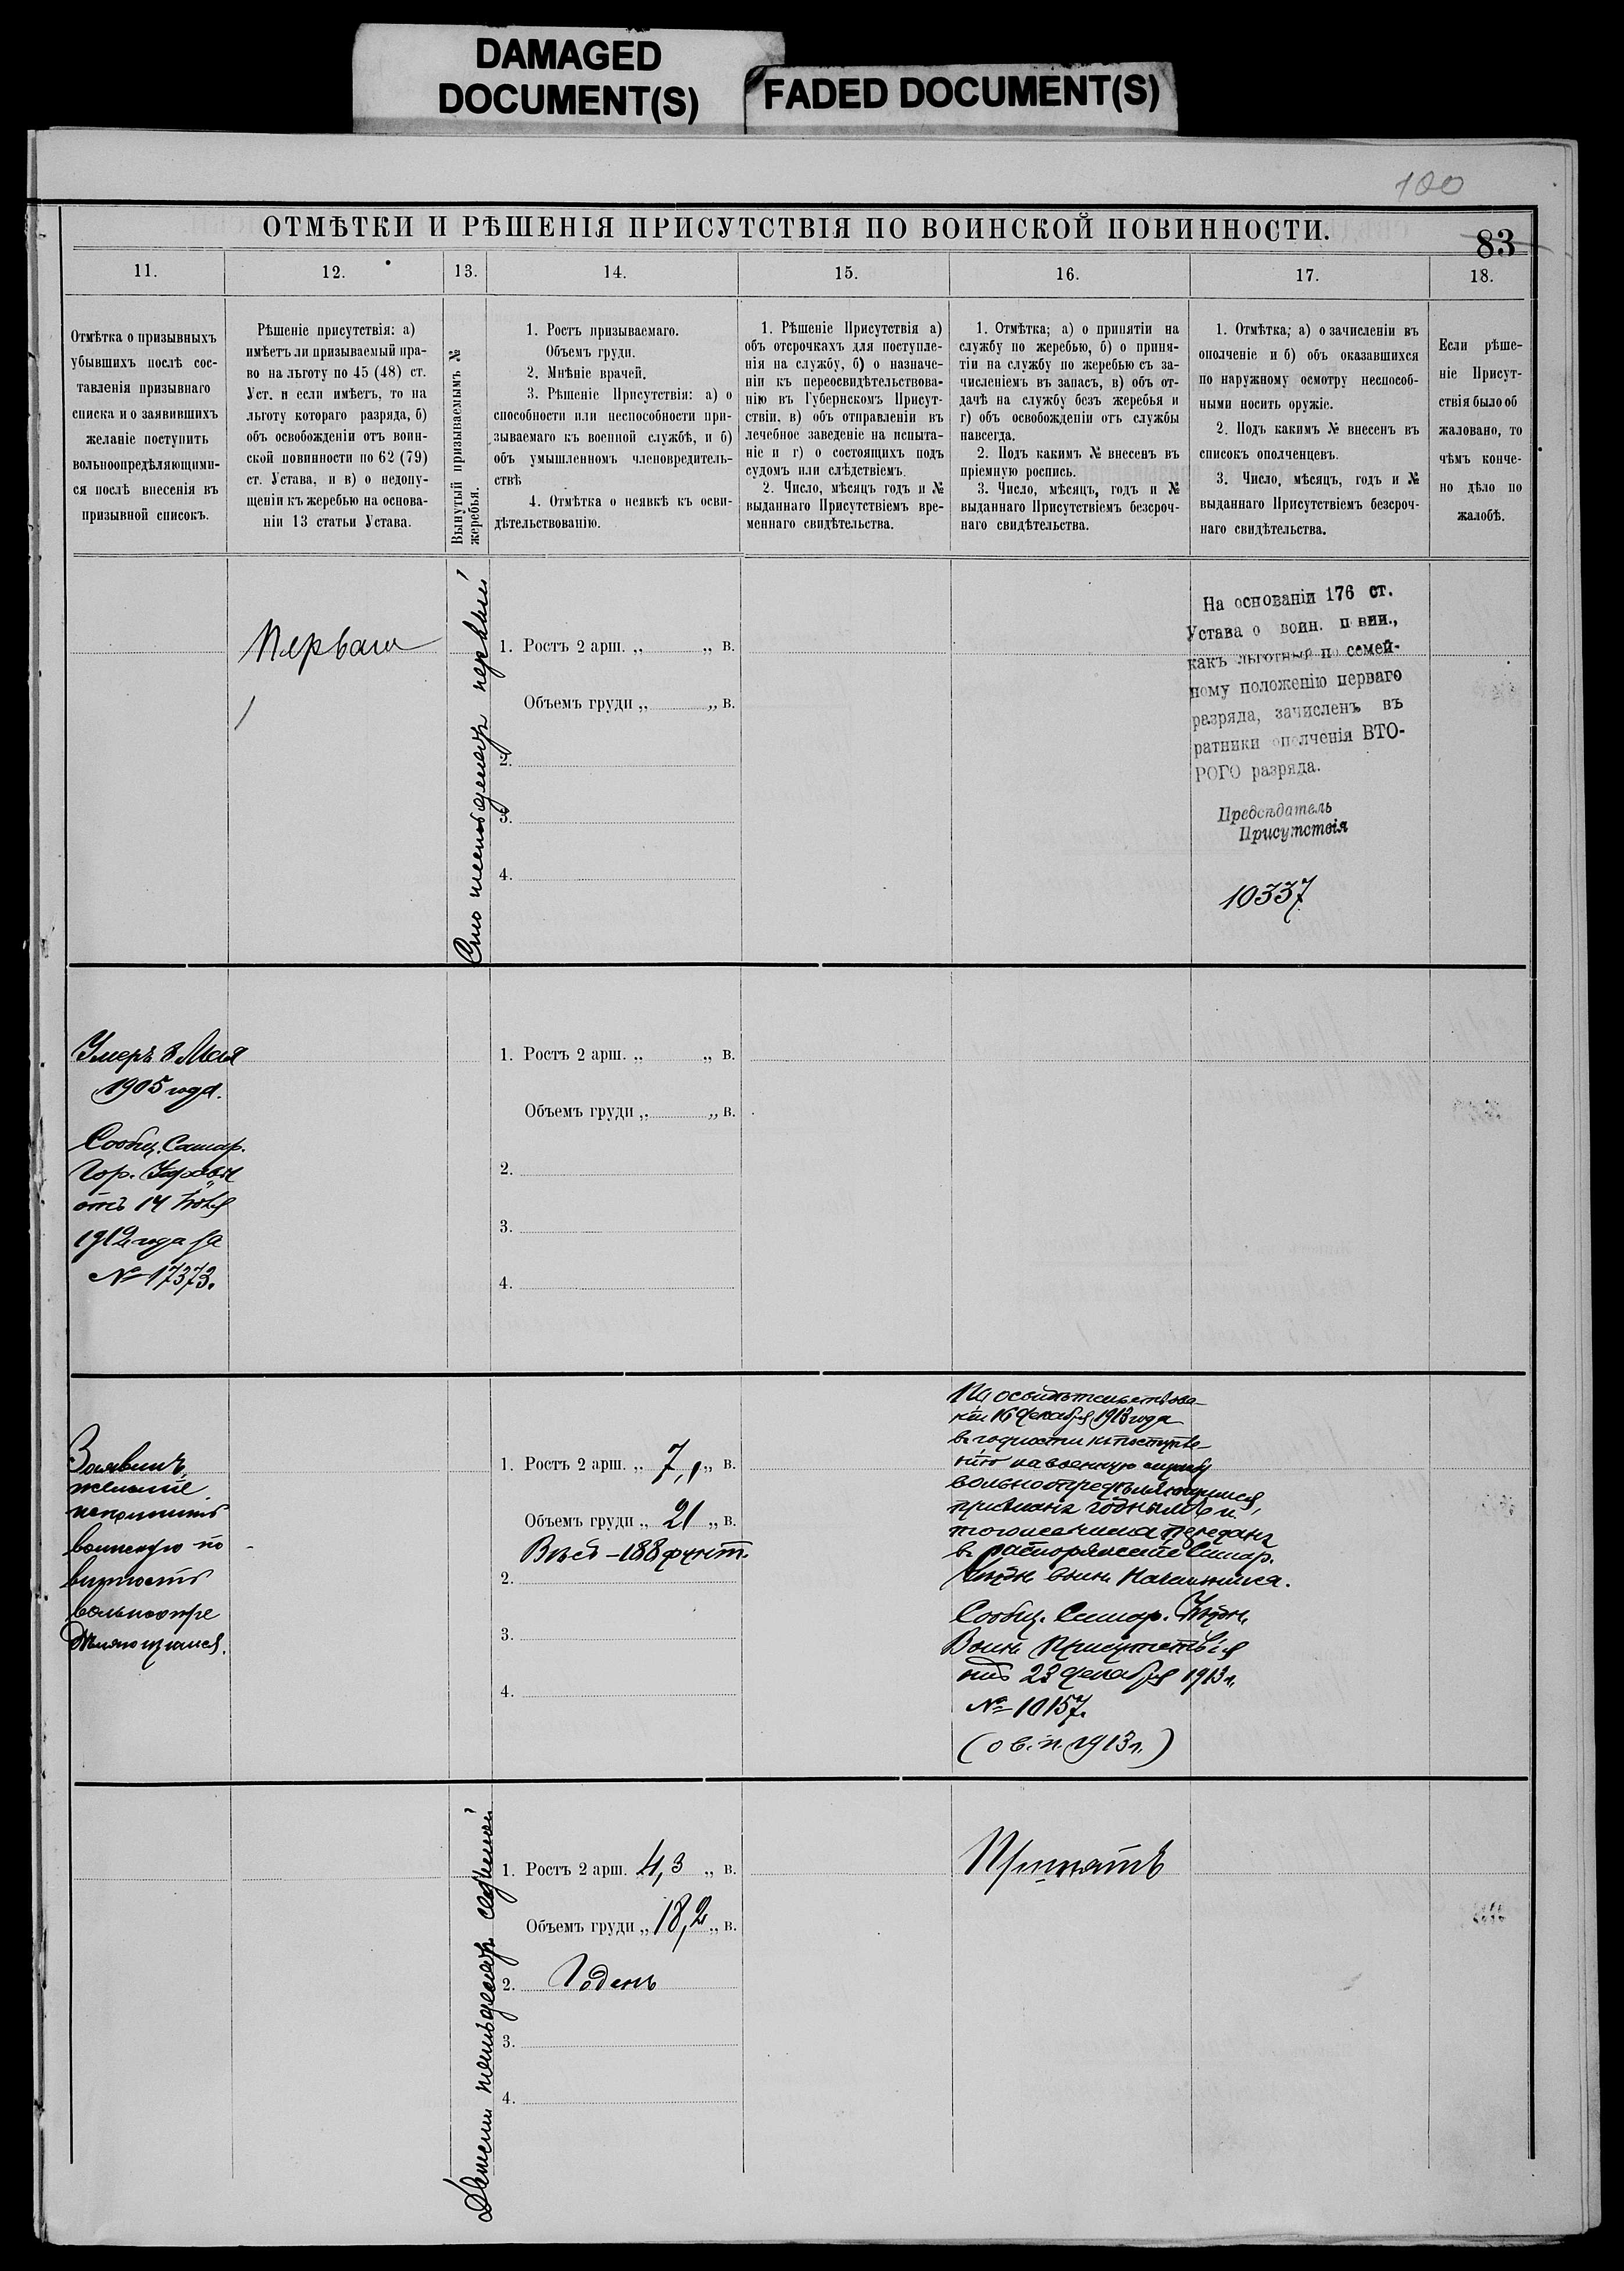 DAMAGED
DOCUMENT(S)
FADED DOCUMENT(S)
100
ОТМѢТКИ И РѢШЕНІЯ ПРИСУТСТВІЯ ПО ВОИНСКОЙ ПОВИННОСТИ.
83
11.
12.
13.
14.
15.
16.
17.
18.
Отмѣтка о призывныхъ
убывшихъ послѣ сос-
тавленія призывнаго
списка и о заявившихъ
желаніе поступить
вольноопредѣляющими-
ся послѣ внесенія въ
призывной списокъ.
Рѣшеніе присутствія: а)
имѣетъ ли призываемый пра-
во на льготу по 45 (48) ст.
Уст. и если имѣетъ, то на
льготу котораго разряда, б)
объ освобожденіи отъ воин-
ской повинности по 62 (79)
ст. Устава, и в) о недопу-
щеніи къ жеребью на основа-
ніи 13 статьи Устава.
Вынутый призываемымъ №
жеребья.
1. Ростъ призываемаго.
Объемъ груди.
2. Мнѣніе врачей.
3. Рѣшеніе Присутствія: а) о
способности или неспособности при-
зываемаго къ военной службѣ, и б)
объ умышленномъ членовредитель-
ствѣ
4. Отмѣтка о неявкѣ къ осви-
дѣтельствованію.
1. Рѣшеніе Присутствія а)
объ отсрочкахъ для поступле-
нія на службу, б) о назначе-
ніи къ переосвидѣтельствова-
нію въ Губернскомъ Присут-
ствіи, в) объ отправленіи въ
лечебное заведеніе на испыта-
ніе и г) о состоящихъ подъ
судомъ или слѣдствіемъ.
2. Число, мѣсяцъ годъ и №
выданнаго Присутствіемъ вре-
меннаго свидѣтельства.
1. Отмѣтка; а) о принятіи на
службу по жеребью, б) о приня-
тіи на службу по жеребью съ за-
численіемъ въ запасъ, в) объ от-
дачѣ на службу безъ жеребья и
г) объ освобожденіи отъ службы
навсегда.
2. Подъ какимъ № внесенъ въ
пріемную роспись.
3. Число, мѣсяцъ, годъ и №
выданнаго Присутствіемъ безсроч-
наго свидѣтельства.
1. Отмѣтка; а) о зачисленіи въ
ополченіе и б) объ оказавшихся
по наружному осмотру неспособ-
ными носить оружіе.
2. Подъ какимъ № внесенъ въ
списокъ ополченцевъ.
3. Число, мѣсяцъ, годъ и №
выданнаго Присутствіемъ безсроч-
наго свидѣтельства.
Если рѣше-
ніе Присут-
ствія было об
жаловано, то
чѣмъ конче-
но дѣло по
жалобѣ.
Первая
1
Сто шестьдесятъ первый
1. Ростъ 2 арш. „ „ в.
Объемъ груди „ „ в.
2.
3.
4.
На основаніи 176 ст.
Устава о воин. п вин.,
какъ льготный по семей-
ному положенію перваго
разряда, зачисленъ въ
ратники ополченія ВТО-
РОГО разряда.
Предсѣдатель
Присутствія
10337
Умеръ 8 Мая
1905 года.
Сообщ. Самар.
Гор. Управы
отъ 14 Ноя
1912 года за
№ 17373.
1. Ростъ 2 арш. „ „ в.
Объемъ груди „ „ в.
2.
3.
4.
Заявилъ
желаніе
исполнить
воинскую по
винность
вольноопре
дѣляющимся.
1. Ростъ 2 арш. „ 7,1 „ в.
Объемъ груди „ 21 „ в.
Вѣсъ - 188 фунт.
2.
3.
4.
По освидѣтельствова-
ніи 16 декабря 1913 года
въ годности къ поступле-
нію на военную службу
вольноопредѣляющимся,
признанъ годнымъ и
того же числа переданъ
въ распоряженіе Самар.
Уѣздн. воин. Начальника.
Сообщ. Самар. Уѣздн.
Воин. Присутствія
отъ 23 декабря 1913 г.
№ 10157.
(о в. п. 1913 г.)
Двѣсти пятьдесятъ седьмой
1. Ростъ 2 арш. 4,3 „ в.
Объемъ груди „ 18,2 „ в.
2. Годенъ
3.
4.
Принятъ